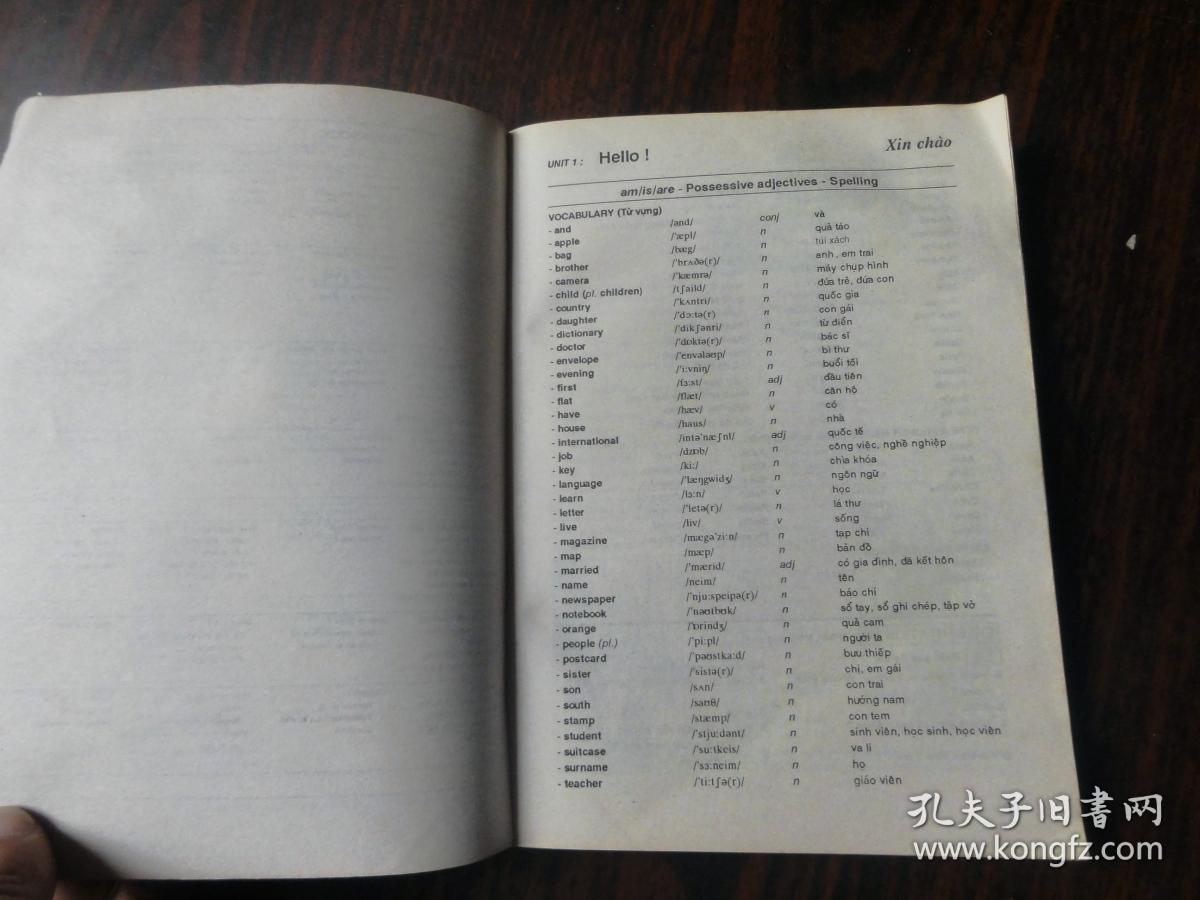 UNIT 1 : Hello ! Xin chào
am/is/are - Possessive adjectives - Spelling
VOCABULARY (Từ vựng)
- and /ənd/ conj và
- apple /'æpl/ n quả táo
- bag /bæg/ n túi xách
- brother /'brʌðə(r)/ n anh, em trai
- camera /'kæmrə/ n máy chụp hình
- child (pl. children) /tʃaild/ n đứa trẻ, đứa con
- country /'kʌntri/ n quốc gia
- daughter /'dɔ:tə(r) n con gái
- dictionary /'dikʃənri/ n từ điển
- doctor /'dɒktə(r)/ n bác sĩ
- envelope /'envələʊp/ n bì thư
- evening /'i:vniŋ/ n buổi tối
- first /fɜ:st/ adj đầu tiên
- flat /flæt/ n căn hộ
- have /hæv/ v có
- house /haus/ n nhà
- international /intə'næʃnl/ adj quốc tế
- job /dʒɒb/ n công việc, nghề nghiệp
- key /ki:/ n chìa khóa
- language /'læŋgwidʒ/ n ngôn ngữ
- learn /lɜ:n/ v học
- letter /'letə(r)/ n lá thư
- live /liv/ v sống
- magazine /mægə'zi:n/ n tạp chí
- map /mæp/ n bản đồ
- married /'mærid/ adj có gia đình, đã kết hôn
- name /neim/ n tên
- newspaper /'nju:speipə(r)/ n báo chí
- notebook /'nəʊtbʊk/ n sổ tay, sổ ghi chép, tập vở
- orange /'ɒrindʒ/ n quả cam
- people (pl.) /'pi:pl/ n người ta
- postcard /'pəʊstka:d/ n bưu thiếp
- sister /'sistə(r)/ n chị, em gái
- son /sʌn/ n con trai
- south /saʊθ/ n hướng nam
- stamp /stæmp/ n con tem
- student /'stju:dənt/ n sinh viên, học sinh, học viên
- suitcase /'su:tkeis/ n va li
- surname /'sɜ:neim/ n họ
- teacher /'ti:tʃə(r)/ n giáo viên
孔夫子旧书网
www.kongfz.com